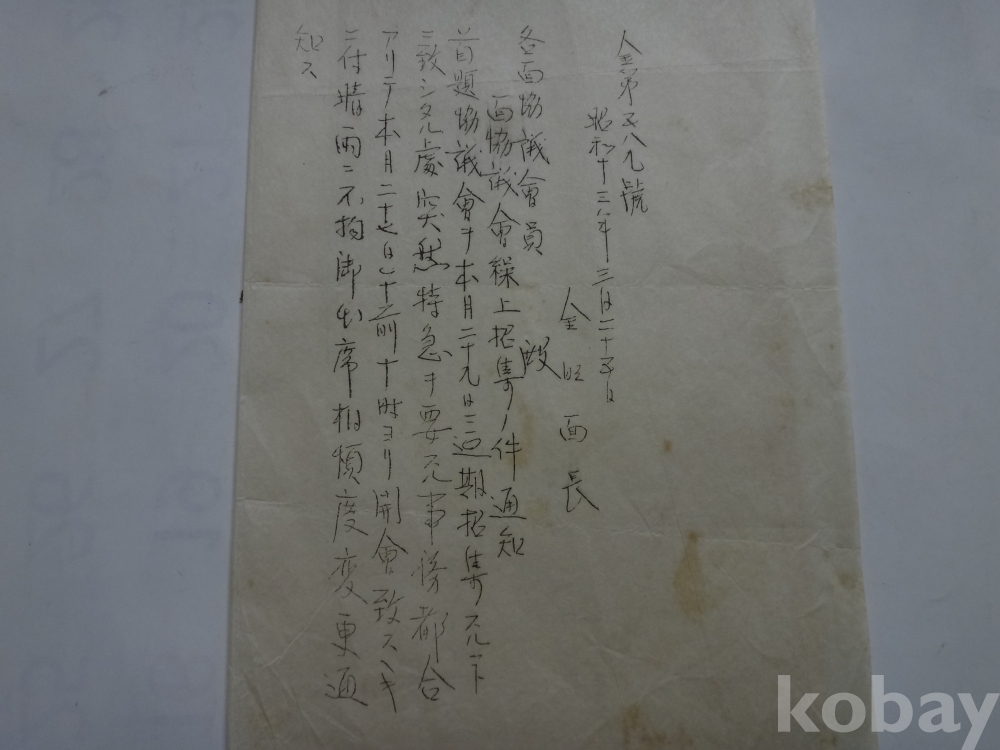 金第五八九號
昭和十三年三月二十五日
金旺面長
各面協議會員 殿
面協議會繰上招集ノ件通知
首題協議會ヲ本月二十九日ニ延期招集スルコト
ニ致シタル處突然特急ヲ要スル事務都合
アリテ本月二十七日午前十時ヨリ開會致スベキ
ニ付晴雨ニ不拘御出席相煩度変更通
知ス
kobay